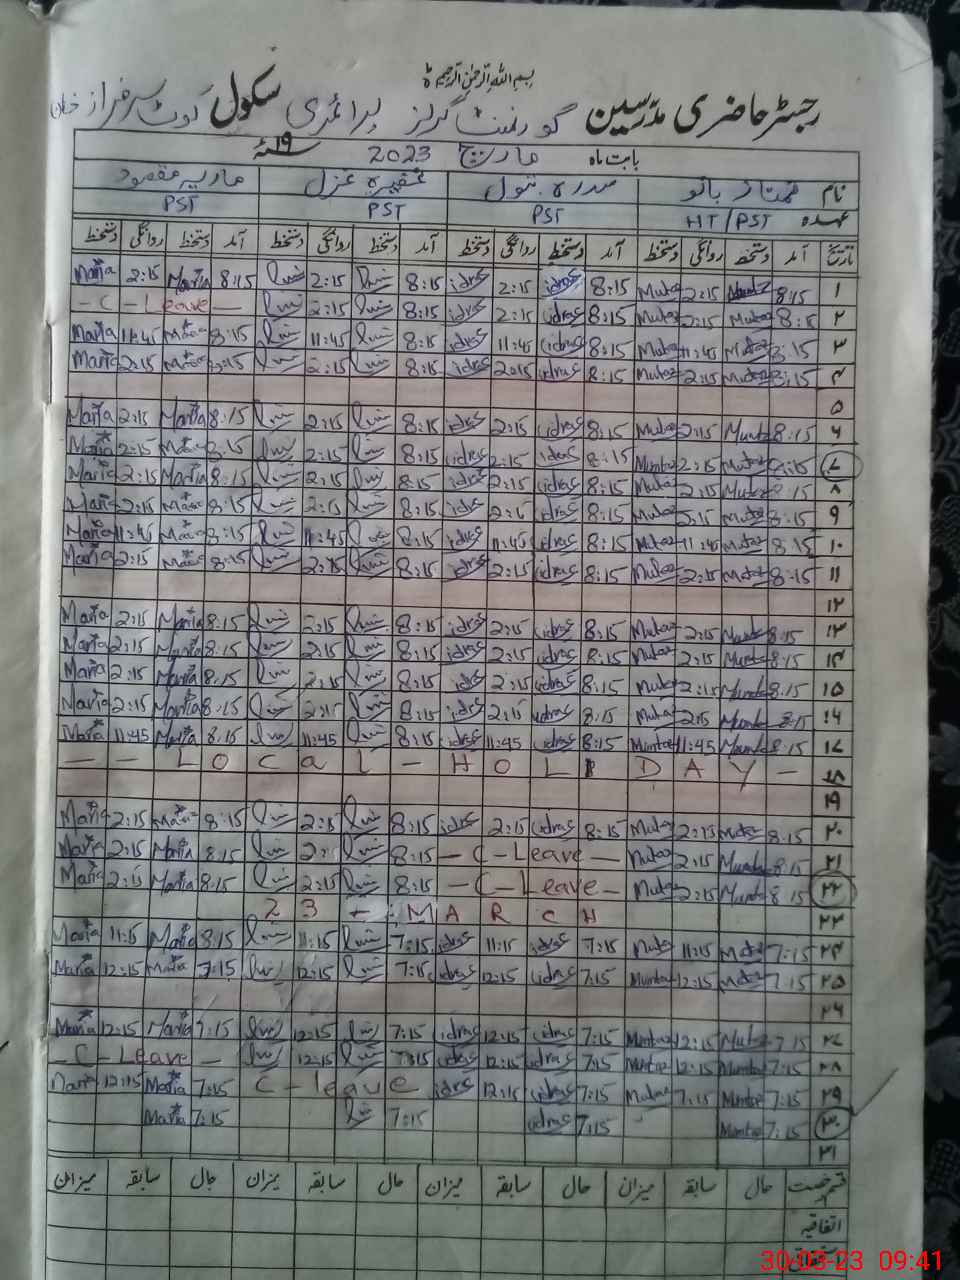 بسم اللہ الرحمن الرحیم
رجسٹر حاضری مدرسین گورنمنٹ گرلز پرائمری سکول کوٹ سرفراز خان
بابت ماہ مارچ 2023 ۱۹ء
نام ممتاز بانو سدرہ بتول عزل ماریہ مقصود
عہدہ HT/PST PST PST PST
تاریخ آمد دستخط روانگی دستخط آمد دستخط روانگی دستخط آمد دستخط روانگی دستخط آمد دستخط روانگی دستخط
۱ 8:15 2:15 8:15 idrus 2:15 idrus 8:15 2:15 8:15 Maria 2:15 Maria
۲ 8:15 Mutaz 2:15 Mutaz 8:15 idrus 2:15 idrus 8:15 2:15 - C - Leave -
۳ 8:15 Mutaz 11:45 Mutaz 8:15 idrus 11:45 idrus 8:15 11:45 8:15 Maria 11:45 Maria
۴ 8:15 Mutaz 2:15 Mutaz 8:15 idrus 2:15 idrus 8:15 2:15 8:15 Maria 2:15 Maria
۵
۶ 8:15 Mumtaz 2:15 Mutaz 8:15 idrus 2:15 idrus 8:15 2:15 8:15 Maria 2:15 Maria
۷ 8:15 Mutaz 2:15 Mumtaz 8:15 idrus 2:15 idrus 8:15 2:15 8:15 Maria 2:15 Maria
۸ 8:15 Mutaz 2:15 Mutaz 8:15 idrus 2:15 idrus 8:15 2:15 8:15 Maria 2:15 Maria
۹ 8:15 Mutaz 2:15 Mutaz 8:15 idrus 2:15 idrus 8:15 2:15 8:15 Maria 2:15 Maria
۱۰ 8:15 Mutaz 11:45 Mutaz 8:15 idrus 11:45 idrus 8:15 11:45 8:15 Maria 11:45 Maria
۱۱ 8:15 Mutaz 2:15 Mutaz 8:15 idrus 2:15 idrus 8:15 2:15 8:15 Maria 2:15 Maria
۱۲
۱۳ 8:15 Mumtaz 2:15 Mutaz 8:15 idrus 2:15 idrus 8:15 2:15 8:15 Maria 2:15 Maria
۱۴ 8:15 Mumtaz 2:15 Mutaz 8:15 idrus 2:15 idrus 8:15 2:15 8:15 Maria 2:15 Maria
۱۵ 8:15 Mumtaz 2:15 Mutaz 8:15 idrus 2:15 idrus 8:15 2:15 8:15 Maria 2:15 Maria
۱۶ 8:15 Mumtaz 2:15 Mutaz 8:15 idrus 2:15 idrus 8:15 2:15 8:15 Maria 2:15 Maria
۱۷ 8:15 Mumtaz 11:45 Mumtaz 8:15 idrus 11:45 idrus 8:15 11:45 8:15 Maria 11:45 Maria
۱۸ - - LOCaL - HOLIDAY -
۱۹
۲۰ 8:15 Mutaz 2:15 Mutaz 8:15 idrus 2:15 idrus 8:15 2:15 8:15 Maria 2:15 Maria
۲۱ 8:15 Mumtaz 2:15 Mutaz - C - Leave - 8:15 2:15 8:15 Maria 2:15 Maria
۲۲ 8:15 Mumtaz 2:15 Mutaz - C - Leave - 8:15 2:15 8:15 Maria 2:15 Maria
۲۳ 23 - MARCH
۲۴ 7:15 Mutaz 11:15 Mutaz 7:15 idrus 11:15 idrus 7:15 11:15 8:15 Maria 11:15 Maria
۲۵ 7:15 Mutaz 12:15 Mumtaz 7:15 idrus 12:15 idrus 7:15 12:15 7:15 Maria 12:15 Maria
۲۶
۲۷ 7:15 Mutaz 12:15 Mumtaz 7:15 idrus 12:15 idrus 7:15 12:15 7:15 Maria 12:15 Maria
۲۸ 7:15 Mumtaz 12:15 Mumtaz 7:15 idrus 12:15 idrus 7:15 12:15 - C - Leave -
۲۹ 7:15 Mumtaz 7:15 Mutaz 7:15 idrus 12:15 idrus C - leave 7:15 Maria 12:15 Maria
۳۰ 7:15 Mumtaz 7:15 idrus 7:15 7:15 Maria
۳۱
قسم رخصت حال سابقہ میزان حال سابقہ میزان حال سابقہ میزان حال سابقہ میزان
اتفاقیہ
30-03-23 09:41